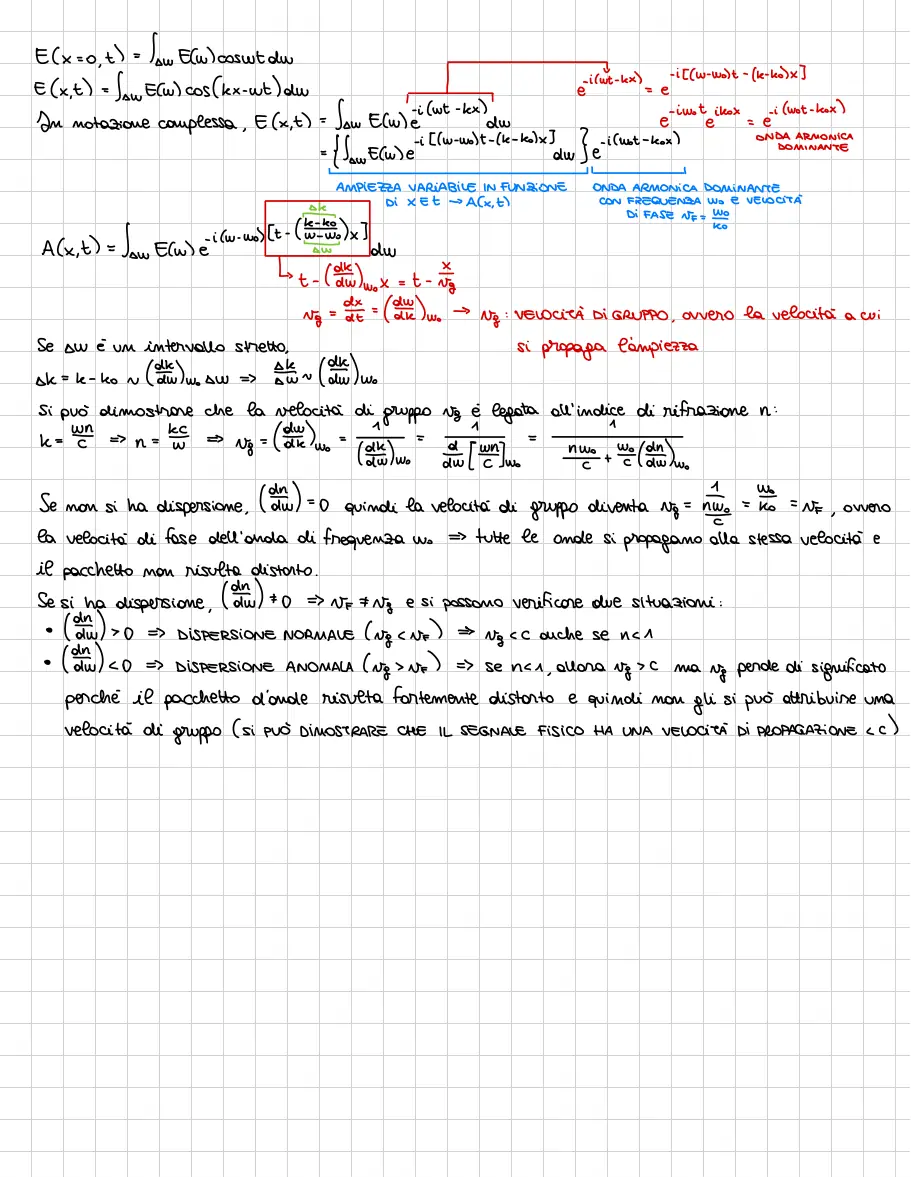 E(x=0,t) = ∫_Δω E(ω) cosωt dω
E(x,t) = ∫_Δω E(ω) cos(kx-ωt) dω
e^{-i(ωt-kx)} = e^{-i[(ω-ω₀)t-(k-k₀)x]}
In notazione complessa, E(x,t) = ∫_Δω E(ω) e^{-i(ωt-kx)} dω
e^{-iω₀t} e^{ik₀x} = e^{-i(ω₀t-k₀x)}
ONDA ARMONICA
DOMINANTE
= {∫_Δω E(ω) e^{-i[(ω-ω₀)t-(k-k₀)x]} dω} e^{-i(ω₀t-k₀x)}
AMPIEZZA VARIABILE IN FUNZIONE
DI X E t → A(x,t)
ONDA ARMONICA DOMINANTE
CON FREQUENZA ω₀ E VELOCITÀ
DI FASE v_F = ω₀/k₀
Δk
A(x,t) = ∫_Δω E(ω) e^{-i(ω-ω₀)[t-((k-k₀)/(ω-ω₀))x]} dω
Δω
t-(dk/dω)_ω₀ x = t - x/v_g
v_g = dx/dt = (dω/dk)_ω₀ → v_g: VELOCITÀ DI GRUPPO, ovvero la velocità a cui
si propaga l'ampiezza
Se Δω è un intervallo stretto,
Δk = k-k₀ ~ (dk/dω)_ω₀ Δω => Δk/Δω ~ (dk/dω)_ω₀
Si può dimostrare che la velocità di gruppo v_g è legata all'indice di rifrazione n:
k = ωn/c => n = kc/ω => v_g = (dω/dk)_ω₀ = 1/(dk/dω)_ω₀ = 1/(d/dω [ωn/c]_ω₀) = 1/(nω₀/c + ω₀/c (dn/dω)_ω₀)
Se non si ha dispersione, (dn/dω) = 0 quindi la velocità di gruppo diventa v_g = 1/(nω₀/c) = ω₀/k₀ = v_F, ovvero
la velocità di fase dell'onda di frequenza ω₀ => tutte le onde si propagano alla stessa velocità e
il pacchetto non risulta distorto.
Se si ha dispersione, (dn/dω) ≠ 0 => v_F ≠ v_g e si possono verificare due situazioni:
• (dn/dω) > 0 => DISPERSIONE NORMALE (v_g < v_F) => v_g < c anche se n<1
• (dn/dω) < 0 => DISPERSIONE ANOMALA (v_g > v_F) => se n<1, allora v_g > c ma v_g perde di significato
perché il pacchetto d'onde risulta fortemente distorto e quindi non gli si può attribuire una
velocità di gruppo (SI PUÒ DIMOSTRARE CHE IL SEGNALE FISICO HA UNA VELOCITÀ DI PROPAGAZIONE < C)